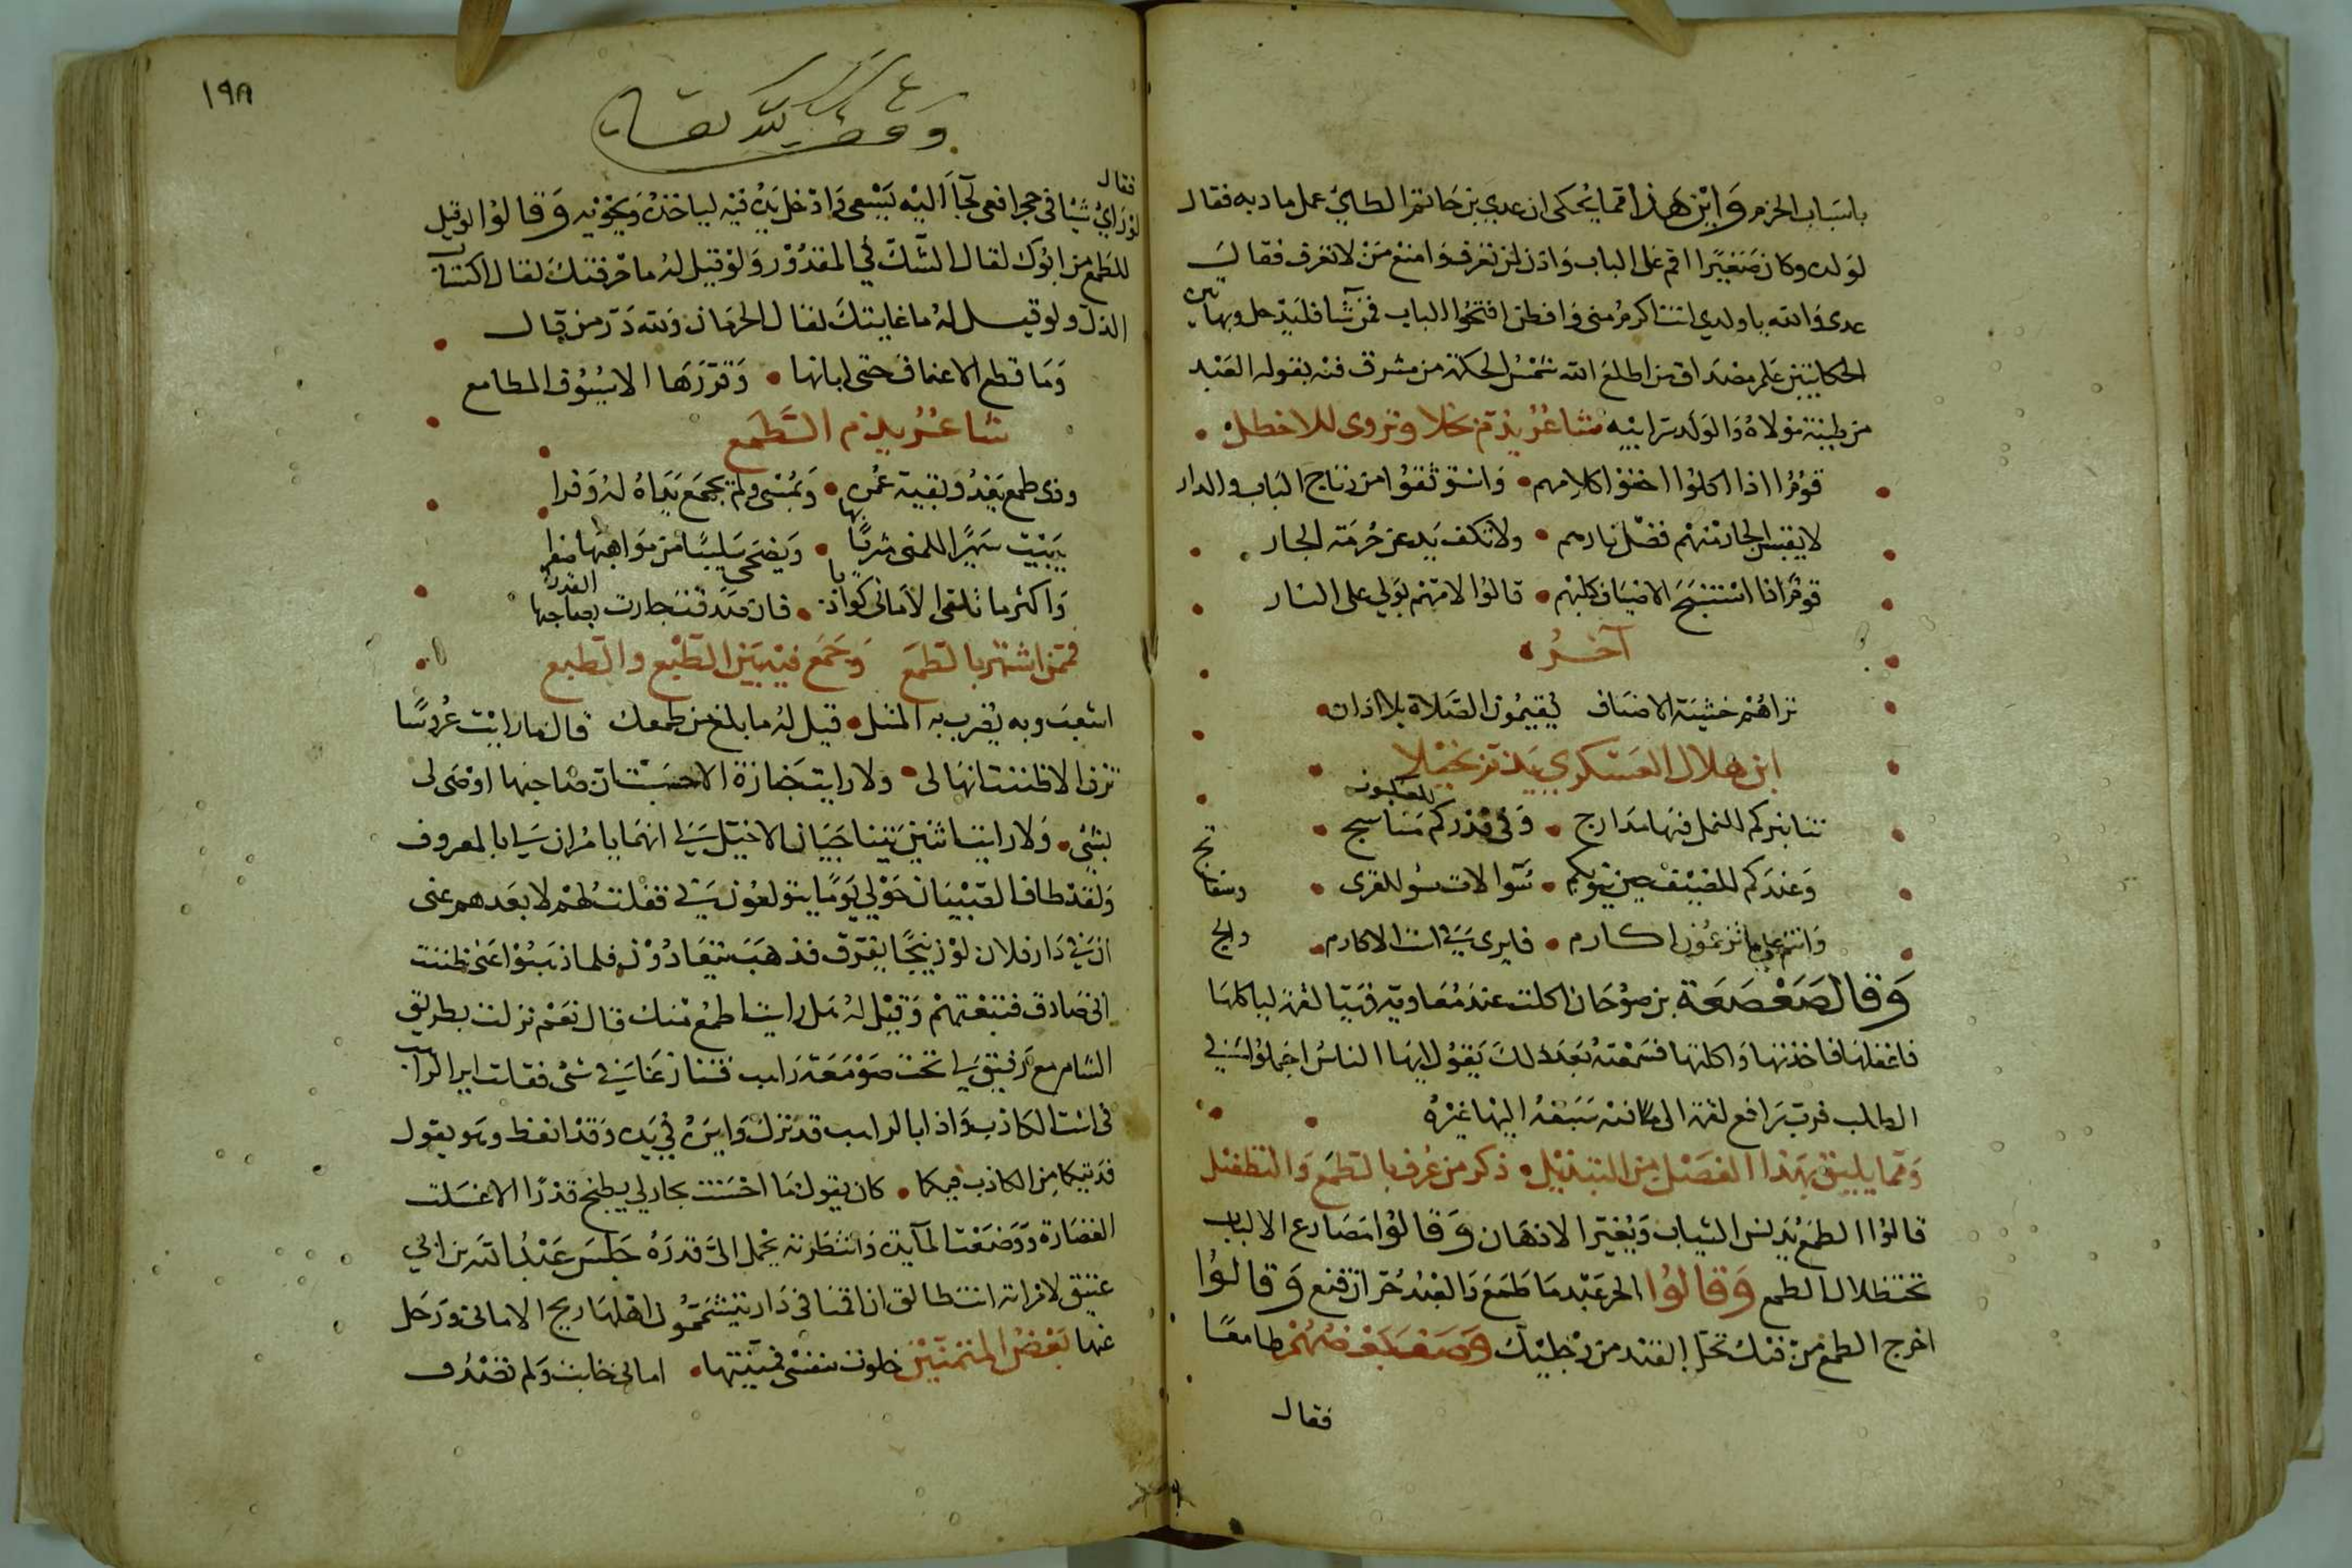 باسباب الحزم وأين هذا مما يُحكى ان عدي بن حاتم الطاي عمل مادبه فقال
لولده وكان صَغيرًا اقم على الباب وَاذن لمن تعرف وَامنع مَنْ لا تعرف فقال
عدى وَالله ياولدي انت اكرم منى وَافطن افتحوا الباب فمن شآ فليدخل وبهاتين
الحكايتين علم مصداق من اطلع الله شمْسُ الحكمة من مشرق فمه بقوله العَبْد
من طينة مَوْلاهُ وَالوَلد سر ابيْه شاعر يذم بخلا وتروى للاخطل
قومٌ اذا اكلوا اخفوا كلامهم وَاستوثقوا من رتاج البَاب والدار
لا يقبس الجار منهم فضل نارهم ولا تكف يد عن حُرمَة الجار
قوم اذا استنبحَ الاضياف كلبهم قالوا لامهم بولي على النار
آخر
تراهُم خشية الاضياف يُقيمُون الصَّلاة بلا اذان
ابن هلال العسكري يذم بخيلا
للعنكبوت
منابركم للنمل فيها مدارج وَفي قدركم مناسج
وَعندكم للضيف حين ينوبكم سوالات سو للقرى
وَانتم على ما تزعُمُون اكارم فايرى في است الاكارم والج
وَقال صَعْصَعَة بن صوحَان اكلت عند مُعَاويه فهيّا لقمة لياكلها
فاغفلها فاخذتها وَاكلتها فسَمْعته بَعد ذلك يَقول ايها الناسُ اجملوا في
الطلب فرب رَافع لقمة الى فيه سَبَقهُ اليها غيْرهُ
وَمما يليق بهذا الفصْل من التذييل ذكر من عُرف بالطمع وَالتطفيل
قالوا الطمع يُدنس الثياب وَيُغير الاذهَان وَقالوا مَصَارع الالباب
تحت ظلال الطمع وَقالوا الحر عَبْد ما طَمَعَ وَالعَبْد حُرّ ان قنع وَقالوا
اخرج الطمع منْ قلبك تحل القيْد من رجليْك وَوَصَف بَعْضهُمْ طامعًا
فقال
١٩٨
وقف لله تعالى
فقال
لوْ رَاي شيْا في جحر افعى لجآ اليْه يَسْعى وَادخل يدُه فيْه لياخذهُ وَيَحْويه وَقالوا لو قيل
للطمع من ابُوك لقال الشَّكّ في المقدُوْر وَلوْ قيل لهُ ما حْرفتكَ لقال اكتساب
الذل ولو قيل لهُ ما غايتكَ لقال الحرمَان وَلله دَرّ من قال
وَمَا قطع الاعناق حتى ابانها وَقوَّرَهَا الا سُيُوف المطامع
شاعر يذم الطمع
وذى طمع يَغدُو بقيه عُمره وَيُمْسي ولم تجمَع يَدَاهُ لهُ وَفرا
يَبيْت سَهيرًا للمنى مثريًا بها وَيضحَى سَليبًا من مَوَاهبها صفرا
وَاكثر ما تلقى الاماني كواذبا فان صدقت جارت بصاحبها القدرا
فممن اشتهر بالطمَع وَجَمَع فيْه بَيْن الطبْع والطبع
اشعب وبه يُضرب به المثل قيل لهُ ما بلغ من طمعك قال ما رايْت عرُوسًا
تزف الا ظننت انهَا لى ولا رايت جَنازة الا حسبْت ان صَاحبها اوْصَى لى
بشئ وَلا رايت اثنيْن يتناجَيَان الا خيّل لي انهمَا يامُران لي بالمعروف
وَلقد طاف الصّبْيَان حَوْلي يَوْمًا يتولعُون بي فقلت لهُم لابعدهم عنى
ان في دَار فلان لوْزينجًا يفرّق فذهَبَوا يَتعَادَوْن فلما ذهبُوا عنى ظننت
انى صَادق فتبعْتهُمْ وَقيْل لهُ هَل رايت اطمَع منك قال نعَم نزلت بطريق
الشام مع رَفيق لي تحت صَوْمَعَة رَاهب فتنازعَنا في شئ فقلت اير الراهب
في است الكاذب وَاذا بالراهب قد نزل وَايرهُ في يَده وَقد انعظ وهو يقول
فديتكما من الكاذب فيكما كان يقول مَا احْسَسْت بجار لي يطبخ قدرًا الا غسَلت
الغضَارة وَوَضعْت المآيدة وَانتظرته يحْمل اليَّ قدرَهُ جَلسَ عَبْدُ الله بن ابي
عتيق لامرَاته انت طالق ان اقمنا في دَار يتشمَّمُ اهلهَا ريح الاماني وَرَحَل
عنها بعْضُ المتمنّيْن خلوت بنفسى فمنّيتها امانى خابت وَلم تصْدُف